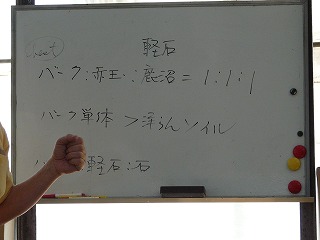 軽石
バーク:赤玉:鹿沼=1:1:1
バーク単体>浮らんソイル
軽石:石